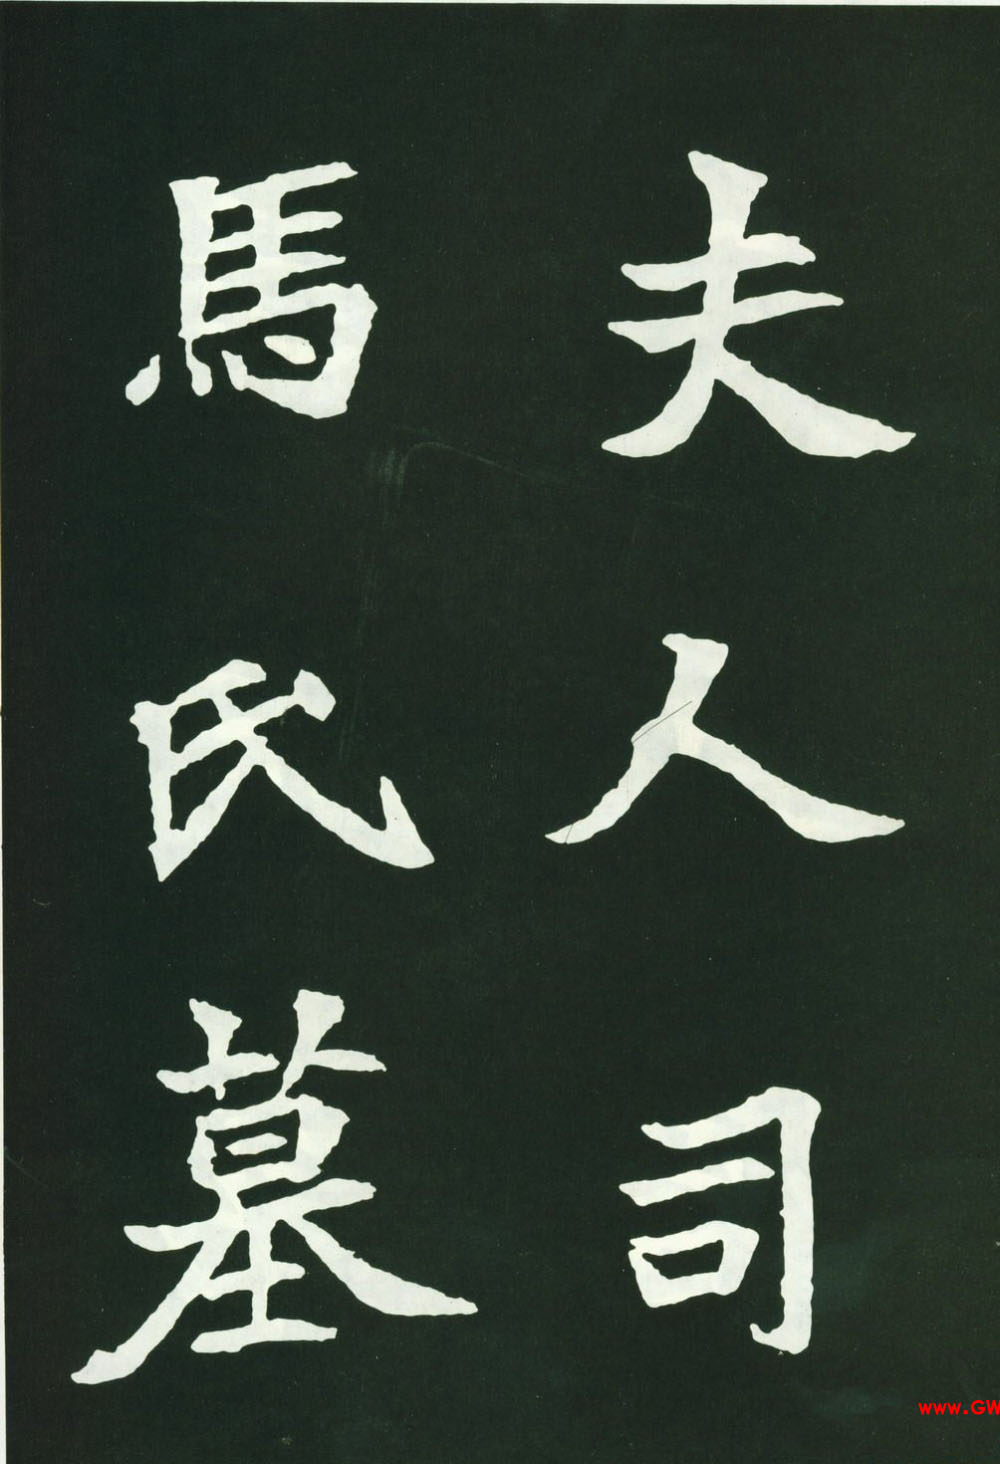 夫人司
馬氏墓
www.GW